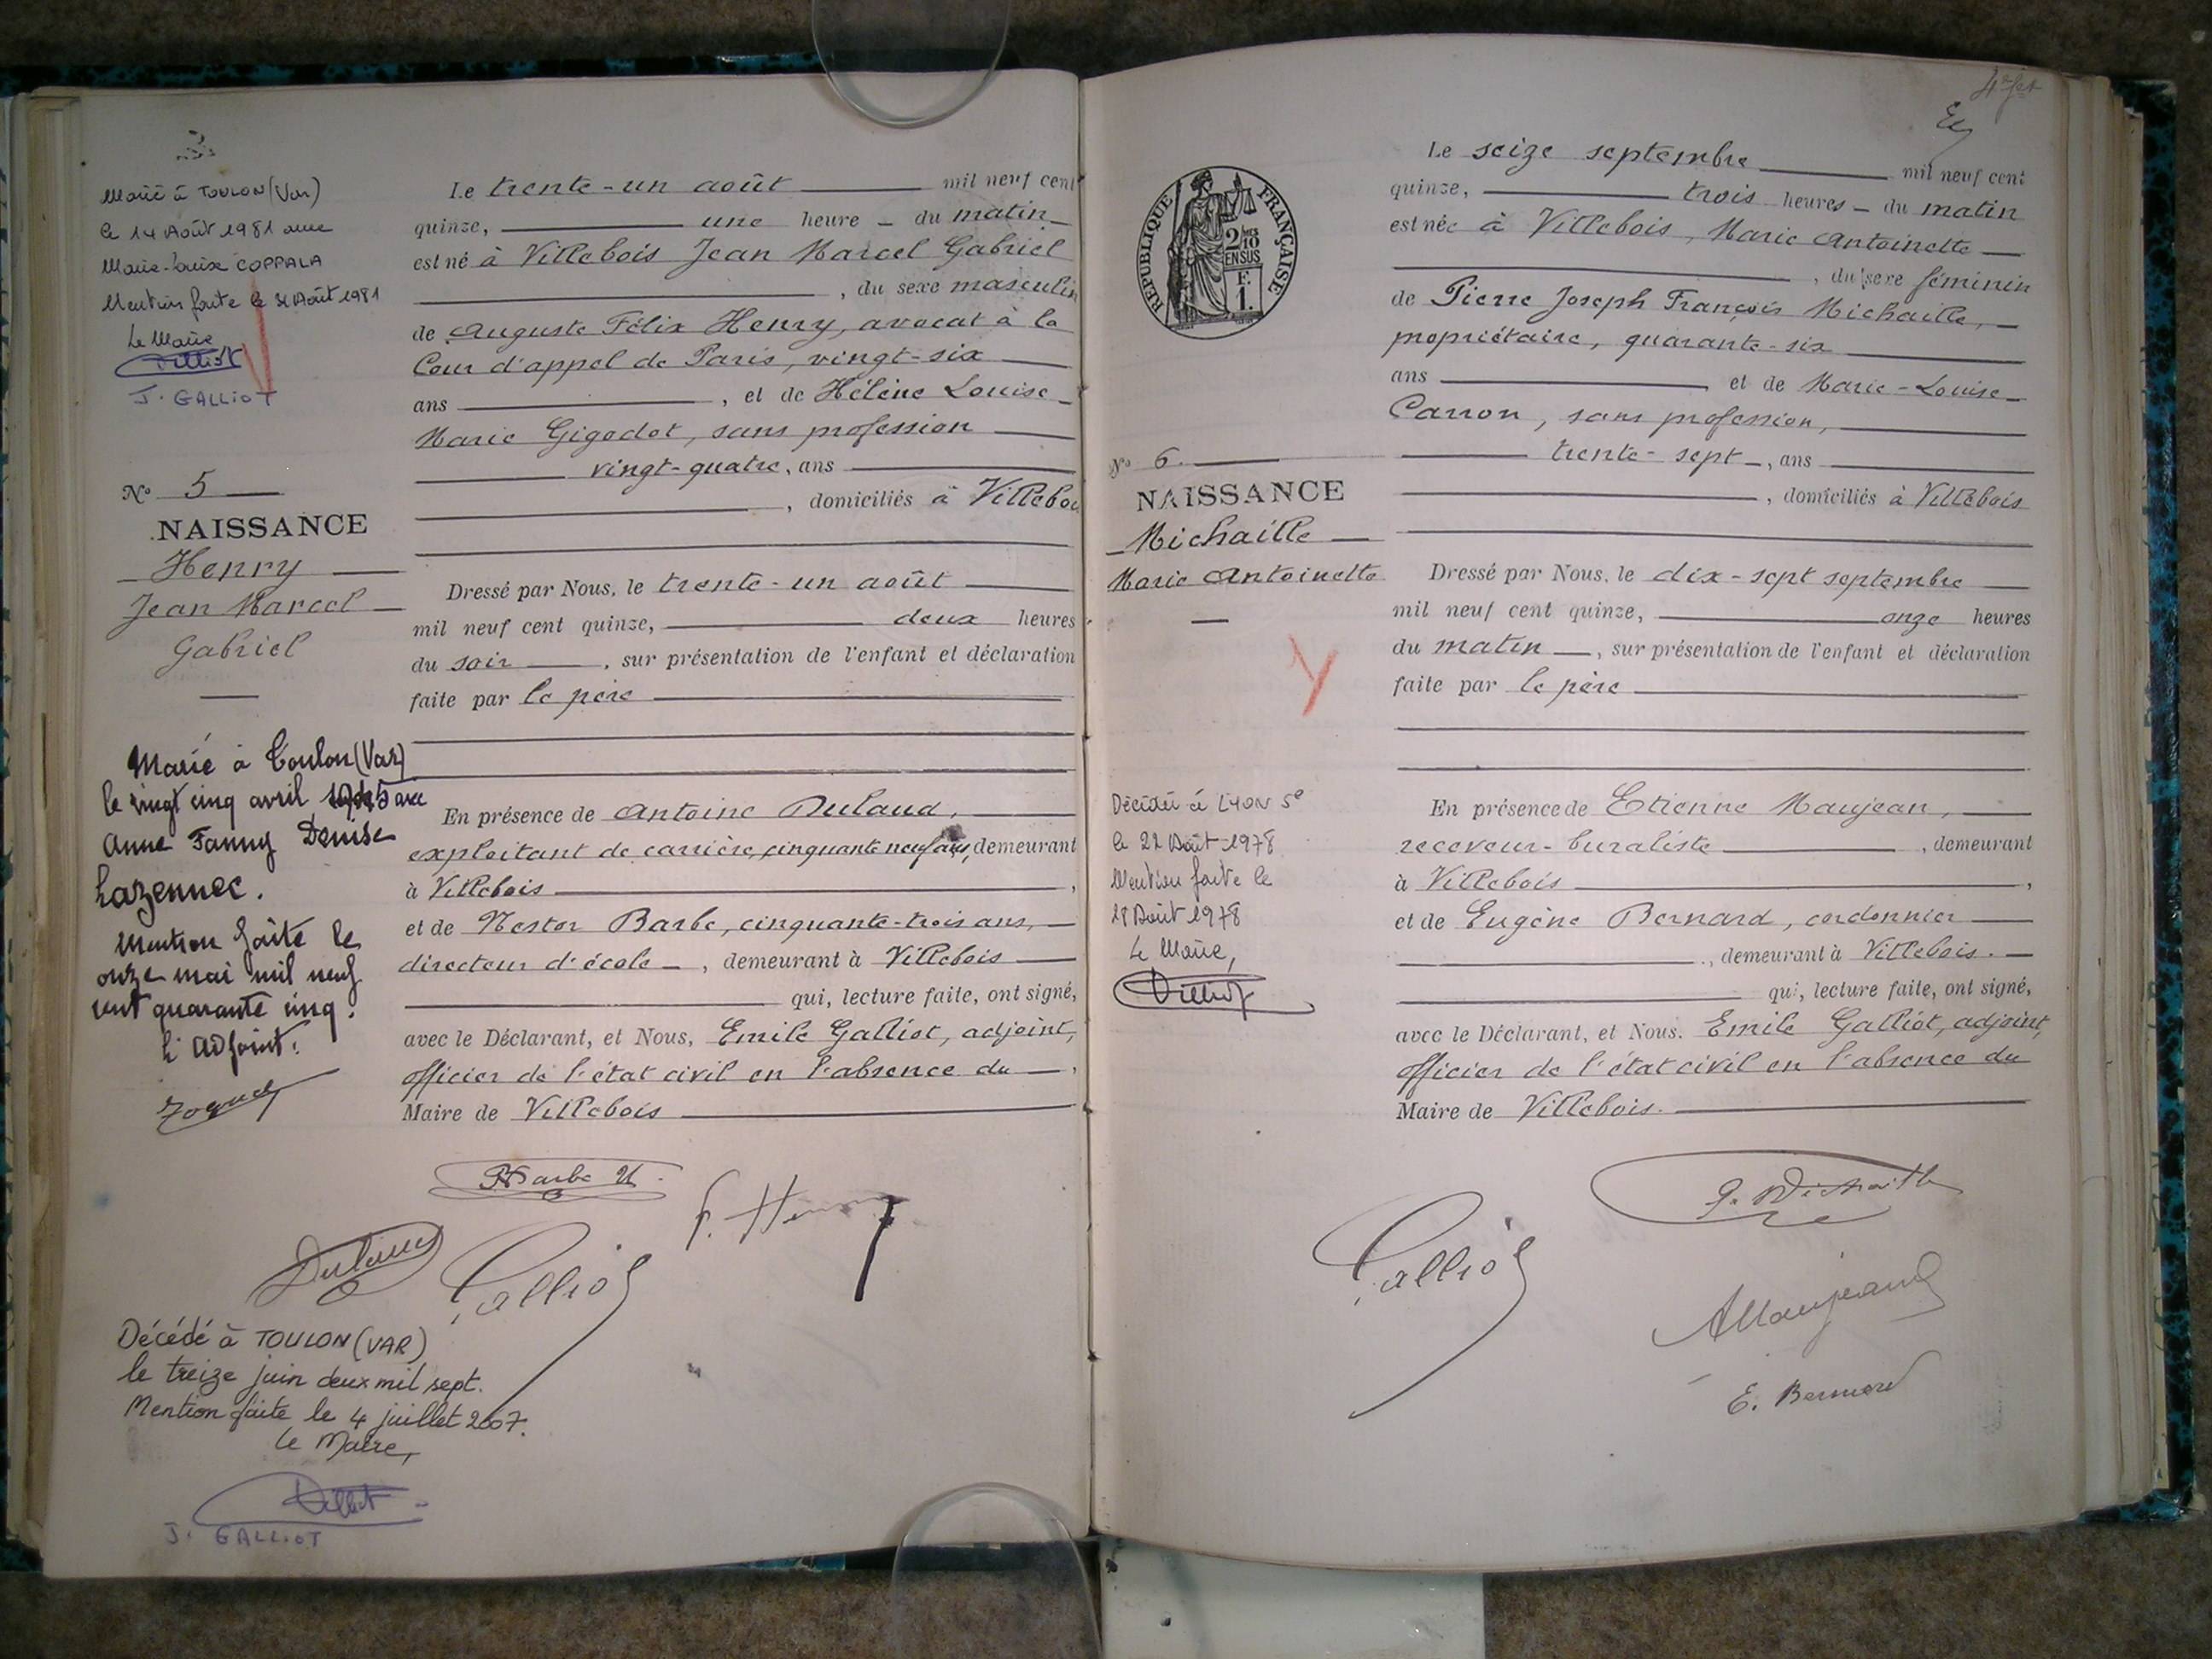 Marié à TOULON (Var)
le 14 Août 1981 avec
Marie-Louise COPPALA
Mention faite le 31 Août 1981
Le Maire
J. GALLIOT
N° 5
NAISSANCE
Henry
Jean Marcel
Gabriel
Marié à Toulon (Var)
le vingt cinq avril 1945 avec
Anne Fanny Denise
Lazennec.
Mention faite le
onze mai mil neuf
cent quarante cinq.
L'Adjoint.
Le trente-un août mil neuf cent
quinze, une heure du matin
est né à Villebois Jean Marcel Gabriel
, du sexe masculin
de Auguste Félix Henry, avocat à la
Cour d'appel de Paris, vingt-six
ans , et de Hélène Louise
Marie Gigodot, sans profession
vingt-quatre, ans
, domiciliés à Villebois
Dressé par Nous, le trente-un août
mil neuf cent quinze, deux heures
du soir , sur présentation de l'enfant et déclaration
faite par le père
En présence de Antoine Dulaud,
exploitant de carrière, cinquante neuf ans, demeurant
à Villebois ,
et de Nestor Barbe, cinquante-trois ans,
directeur d'école , demeurant à Villebois
qui, lecture faite, ont signé,
avec le Déclarant, et Nous, Emile Galliot, adjoint,
officier de l'état civil en l'absence du ,
Maire de Villebois
Barbe N.
F. Henry
Dulaud
Galliot
Décédé à TOULON (VAR)
le treize juin deux mil sept.
Mention faite le 4 juillet 2007.
Le Maire,
J. GALLIOT
4e fet
RÉPUBLIQUE FRANÇAISE
2/10
EN SUS
F.
1.
N° 6.
NAISSANCE
Michaille
Marie Antoinette
Décédée à LYON 5e
le 22 Août 1978
Mention faite le
28 Août 1978
Le Maire,
Le seize septembre mil neuf cent
quinze, trois heures du matin
est née à Villebois, Marie Antoinette
, du sexe féminin
de Pierre Joseph François Michaille,
propriétaire, quarante-six
ans et de Marie-Louise
Carron, sans profession,
trente-sept , ans
, domiciliés à Villebois
Dressé par Nous, le dix-sept septembre
mil neuf cent quinze, onze heures
du matin , sur présentation de l'enfant et déclaration
faite par le père
En présence de Etienne Maujean,
receveur-buraliste , demeurant
à Villebois ,
et de Eugène Bernard, cordonnier
, demeurant à Villebois.
qui, lecture faite, ont signé,
avec le Déclarant, et Nous. Emile Galliot, adjoint,
officier de l'état civil en l'absence du
Maire de Villebois.
Galliot
Maujean
E. Bernard